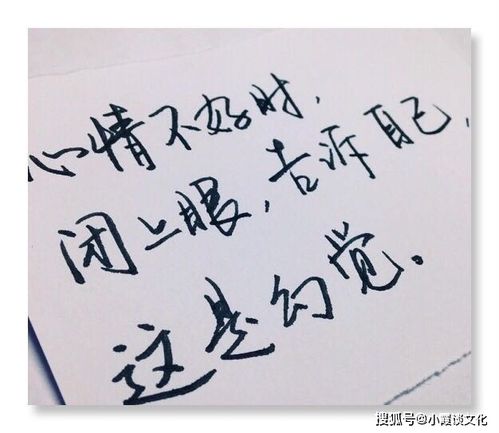 心情不好时，
闭上眼，告诉自己，
这是幻觉。
搜狐号@小霞谈文化